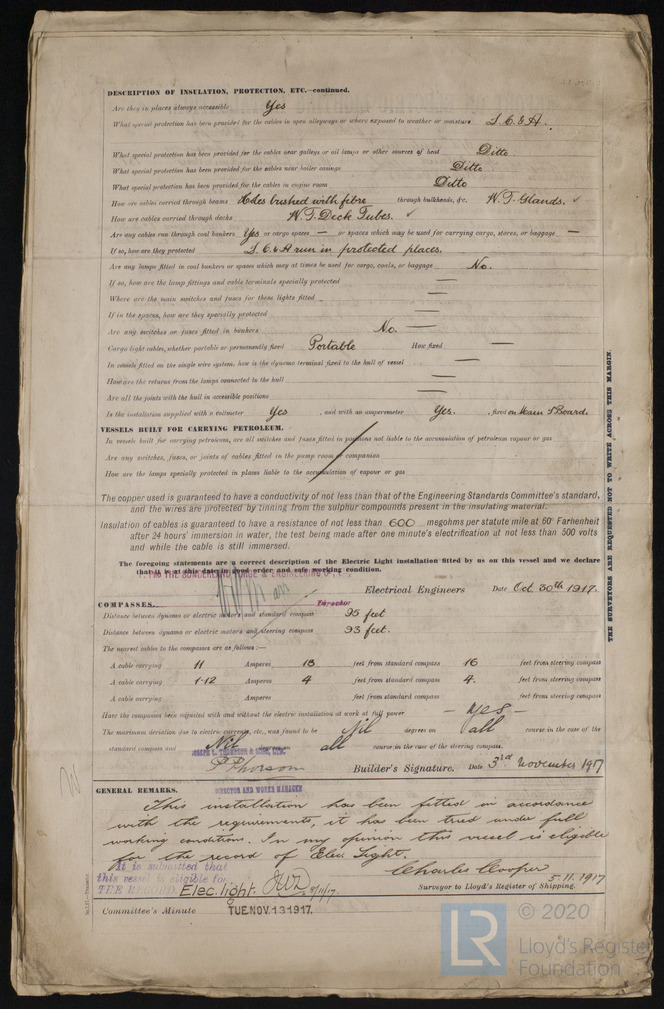 DESCRIPTION OF INSULATION, PROTECTION, ETC.—continued.
Are they in places always accessible Yes
What special protection has been provided for the cables in open alleyways or where exposed to weather or moisture L.C.& A.
What special protection has been provided for the cables near galleys or oil lamps or other sources of heat Ditto
What special protection has been provided for the cables near boiler casings Ditto
What special protection has been provided for the cables in engine room Ditto
How are cables carried through beams Holes bushed with fibre through bulkheads, &c. W.T. Glands. ✓
How are cables carried through decks W.T. Deck Tubes. ✓
Are any cables run through coal bunkers Yes or cargo spaces — or spaces which may be used for carrying cargo, stores, or baggage —
If so, how are they protected L.C.& A run in protected places.
Are any lamps fitted in coal bunkers or spaces which may at times be used for cargo, coals, or baggage No.
If so, how are the lamp fittings and cable terminals specially protected —
Where are the main switches and fuses for these lights fitted —
If in the spaces, how are they specially protected —
Are any switches or fuses fitted in bunkers No. —
Cargo light cables, whether portable or permanently fixed Portable How fixed —
In vessels fitted on the single wire system, how is the dynamo terminal fixed to the hull of vessel —
How are the returns from the lamps connected to the hull —
Are all the joints with the hull in accessible positions —
Is the installation supplied with a voltmeter Yes , and with an amperemeter Yes. , fixed on Main S Board.
VESSELS BUILT FOR CARRYING PETROLEUM.
In vessels built for carrying petroleum, are all switches and fuses fitted in positions not liable to the accumulation of petroleum vapour or gas
Are any switches, fuses, or joints of cables fitted in the pump room or companion
How are the lamps specially protected in places liable to the accumulation of vapour or gas
The copper used is guaranteed to have a conductivity of not less than that of the Engineering Standards Committee's standard,
and the wires are protected by tinning from the sulphur compounds present in the insulating material.
Insulation of cables is guaranteed to have a resistance of not less than 600 megohms per statute mile at 60° Farhenheit
after 24 hours' immersion in water, the test being made after one minute's electrification at not less than 500 volts
and while the cable is still immersed.
The foregoing statements are a correct description of the Electric Light installation fitted by us on this vessel and we declare
that it is at this date in good order and safe working condition.
Electrical Engineers Date Oct 30th 1917.
Director
COMPASSES.
Distance between dynamo or electric motors and standard compass 95 feet
Distance between dynamo or electric motors and steering compass 93 feet.
The nearest cables to the compasses are as follows:—
A cable carrying 11 Amperes 18 feet from standard compass 16 feet from steering compass
A cable carrying 1.12 Amperes 4 feet from standard compass 4. feet from steering compass
A cable carrying Amperes feet from standard compass feet from steering compass
Have the compasses been adjusted with and without the electric installation at work at full power — Yes —
The maximum deviation due to electric currents, etc., was found to be Nil degrees on all course in the case of the
standard compass and Nil all course in the case of the steering compass.
JOSEPH L. THOMPSON & SONS, LTD.
Builder's Signature. Date 3rd November 1917
DIRECTOR AND WORKS MANAGER
GENERAL REMARKS.
This installation has been fitted in accordance
with the requirements, it has been tried under full
working conditions. In my opinion this vessel is eligible
for the record of Elec. Light.
It is submitted that
this vessel is eligible for
THE RECORD. Elec. light. 8/11/17.
Charles Cooper 5.11.1917
Surveyor to Lloyd's Register of Shipping.
Committee's Minute TUE. NOV. 13 1917.
THE SURVEYORS ARE REQUESTED NOT TO WRITE ACROSS THIS MARGIN.
LR © 2020
Lloyd's Register
Foundation